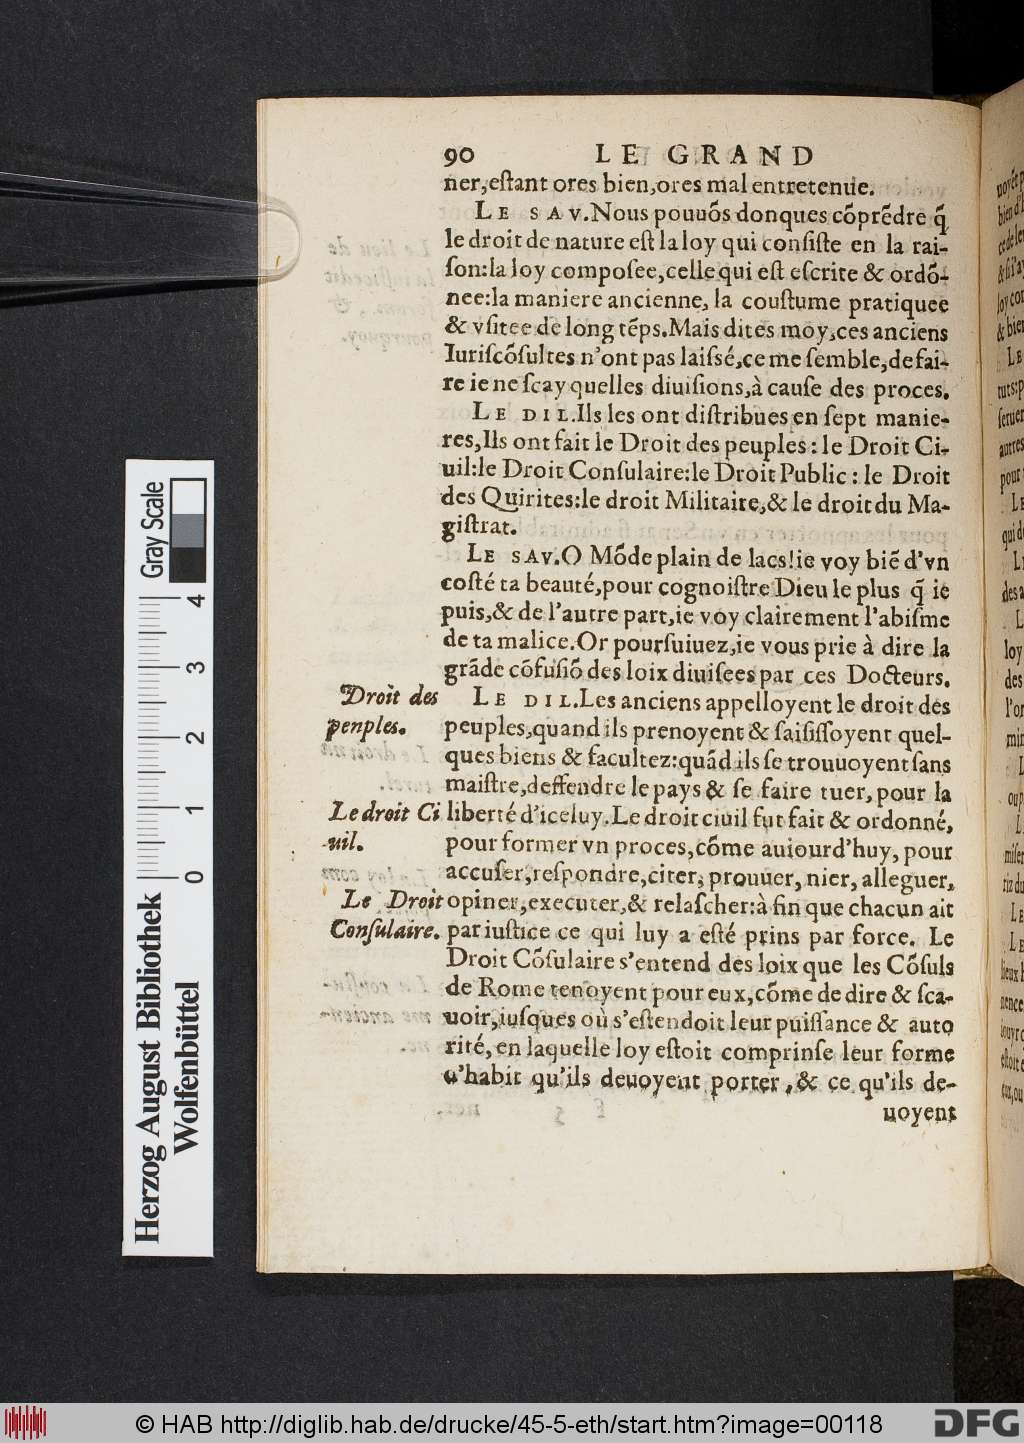 90 LE GRAND
ner,eſtant ores bien,ores mal entretenue.
LE SAV.Nous pouuõs donques cõprẽdre q̃
le droit de nature eſt la loy qui conſiſte en la rai-
ſon:la loy compoſee,celle qui eſt eſcrite & ordõ-
nee:la maniere ancienne, la couſtume pratiquee
& vſitee de long tẽps.Mais dites moy,ces anciens
Iuriſcõſultes n'ont pas laiſſé,ce me ſemble,de fai-
re ie ne ſcay quelles diuiſions,à cauſe des proces.
LE DIL.Ils les ont diſtribues en ſept manie-
res,Ils ont fait le Droit des peuples : le Droit Ci-
uil:le Droit Conſulaire:le Droit Public : le Droit
des Quirites:le droit Militaire,& le droit du Ma-
giſtrat.
LE SAV.O Mõde plain de lacs!ie voy biẽ d'vn
coſté ta beauté,pour cognoiſtre Dieu le plus q̃ ie
puis,& de l'autre part,ie voy clairement l'abiſme
de ta malice.Or pourſuiuez,ie vous prie à dire la
grãde cõfuſiõ des loix diuiſees par ces Docteurs.
Droit des
penples.
LE DIL.Les anciens appelloyent le droit des
peuples,quand ils prenoyent & ſaiſiſſoyent quel-
ques biens & facultez:quãd ils ſe trouuoyent ſans
maiſtre,deffendre le pays & ſe faire tuer, pour la
Le droit Ci
uil.
liberté d'iceluy.Le droit ciuil fut fait & ordonné,
pour former vn proces,cõme auiourd'huy, pour
accuſer,reſpondre,citer, prouuer, nier, alleguer,
Le Droit
Conſulaire.
opiner,executer,& relaſcher:à fin que chacun ait
par iuſtice ce qui luy a eſté prins par force. Le
Droit Cõſulaire s'entend des loix que les Cõſuls
de Rome tenoyent pour eux,cõme de dire & ſca-
uoir,iuſques où s'eſtendoit leur puiſſance & auto
rité, en laquelle loy eſtoit comprinſe leur forme
d'habit qu'ils deuoyent porter, & ce qu'ils de-
uoyent
Gray Scale
0 1 2 3 4
Herzog August Bibliothek
Wolfenbüttel
© HAB http://diglib.hab.de/drucke/45-5-eth/start.htm?image=00118
DFG